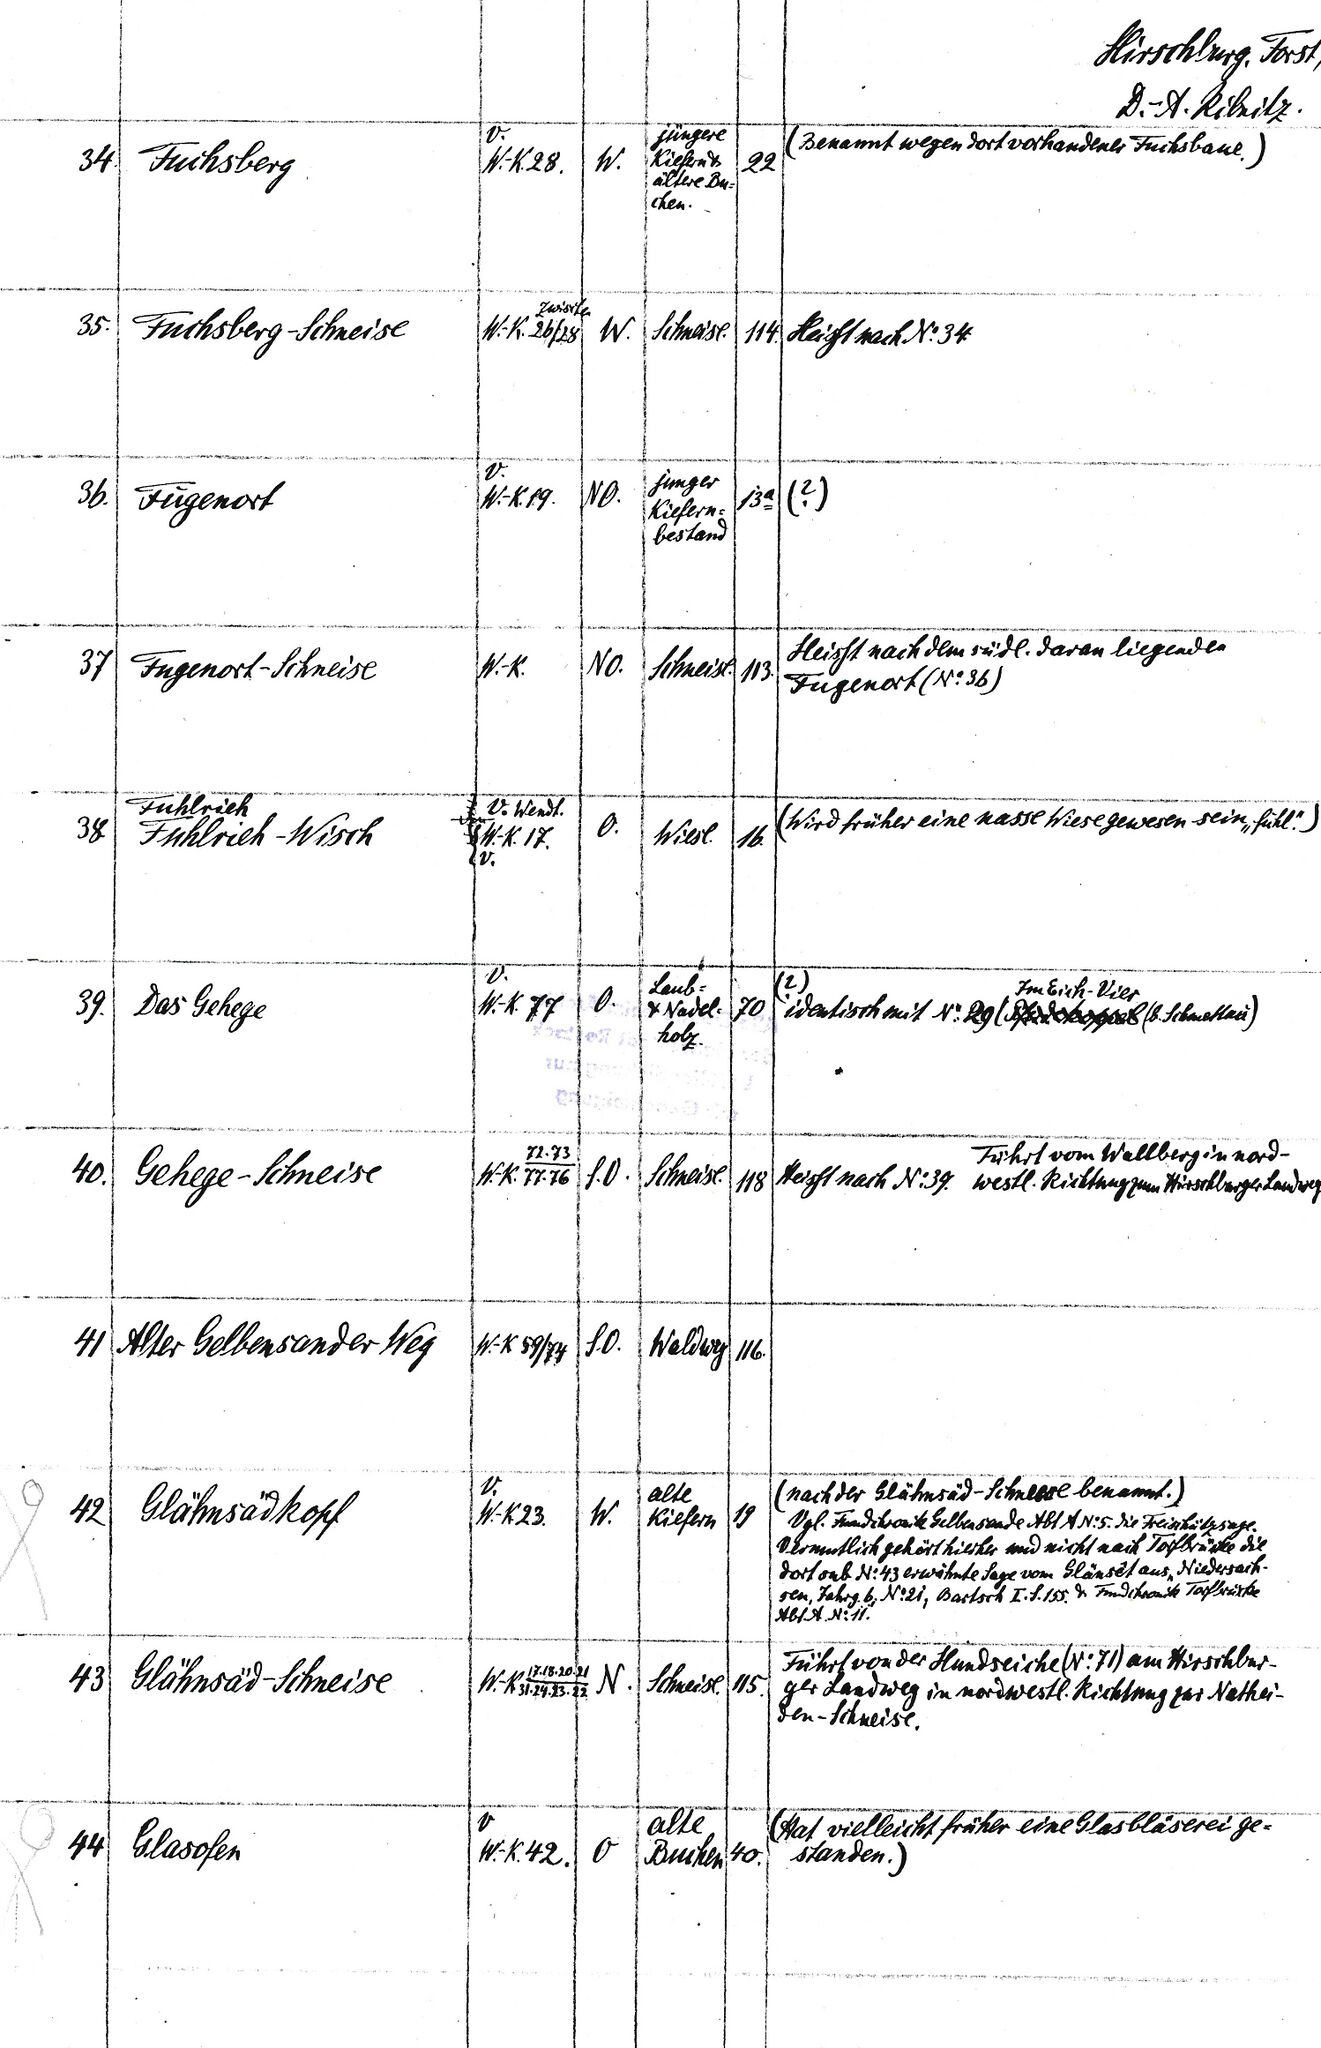 Hirschburg. Forst,
D.-A. Ribnitz.
34. Fuchsberg
V.
W.-K. 28. W.
jüngere
Kiefern &
ältere Bu=
chen.
22
(Benannt wegen dort vorhandener Fuchsbaue.)
35. Fuchsberg-Schneise
zwischen
W.-K. 26/28 W. Schneise. 114. Heisst nach No. 34
36. Fugenort
V.
W.-K. 19. NO.
junger
Kiefern=
bestand
13a (?)
37 Fugenort-Schneise W.-K. NO. Schneise. 113.
Heisst nach dem südl. daran liegenden
Fugenort (No. 36)
38
Fuhlrieh
Fuhlrieh-Wisch
V. Wendt.
W.-K. 17.
V.
O. Wiese. 16.
(Wird früher eine nasse Wiese gewesen sein, „fuhl".)
39. Das Gehege
V.
W.-K. 77 O.
Laub=
& Nadel-
holz.
70
(?)
Im Eich-Vier
identisch mit No. 29 (S. Schmettau)
40. Gehege-Schneise
W.-K. 72.73
77.76
S.O. Schneise. 118 Heisst nach No. 39.
Führt vom Wallberg in nord-
westl. Richtung zum Hirschburger Landweg
41 Alter Gelbensander Weg W.-K 59/74 S.O. Waldweg 116.
42 Glähnsädkopf
V.
W.-K 23. W.
alte
Kiefern
19
(nach der Glähnsäd-Schneese benannt.)
Vgl. Fundchronik Gelbensande Abt A No. 5. die Freischützsage.
Vermutlich gehört hierher und nicht nach Torfbrücke die
dort sub No. 43 erwähnte Sage vom Glänsät aus „Niedersach-
sen, Jahrg. 6, No. 21, Bartsch I. S. 155. & Fundchronik Torfbrücke
Abt. A. No. 11.
43 Glähnsäd-Schneise
W.-K 17.18.20.21
31.24.23.22
N. Schneise. 115.
Führt von der Hundseiche (No. 71) am Hirschbur-
ger Landweg in nordwestl. Richtung zur Nathei-
den-Schneise.
44 Glasofen
V
W.-K. 42. O
alte
Buchen
40.
(Hat vielleicht früher eine Glasbläserei ge=
standen.)